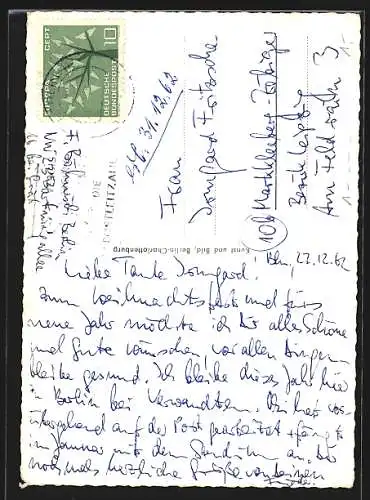 EUROPA CEPT
10
DEUTSCHE
BUNDESPOST
DIE
POSTLEITZAHL
31.12.62
Frau
Irmgard Fritzsche
10b Markkleeberg-Zöbigker
Bezirk Leipzig
Am Feldrain 3
Kunst und Bild, Berlin-Charlottenburg
Bln, 27.12.62
Liebe Tante Irmgard!
Zum Weihnachtsfest und fürs
neue Jahr möchte ich Dir alles Schöne
und Gute wünschen, vor allen Dingen
bleibe gesund. Ich bleibe dieses Jahr hier
in Berlin bei Verwandten. Ich habe vor-
übergehend auf der Post gearbeitet + fange
im Januar mit dem Studium an. Dir
nochmals herzliche Grüße von Deinem